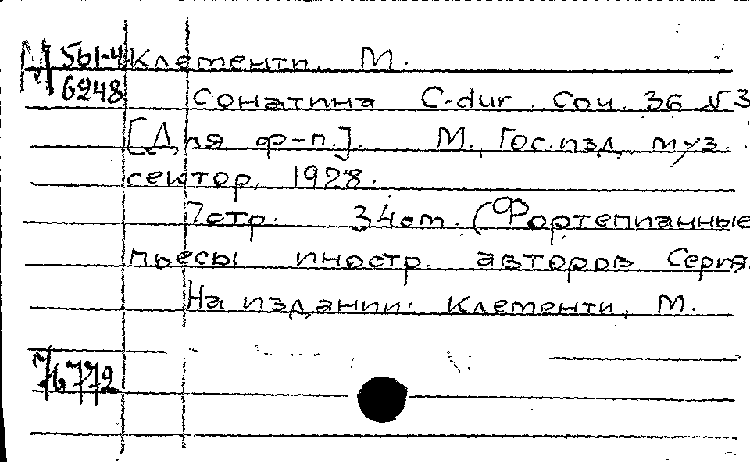 М 561-4 Клементи, М.
6248 Сонатина C-dur. Соч. 36 №3
[Для ф-п.]. М., Гос. изд. муз.
сектор, 1928.
7 стр. 34 см. (Фортепианные
пьесы иностр. авторов Серия
На издании: Клементи, М.
76772